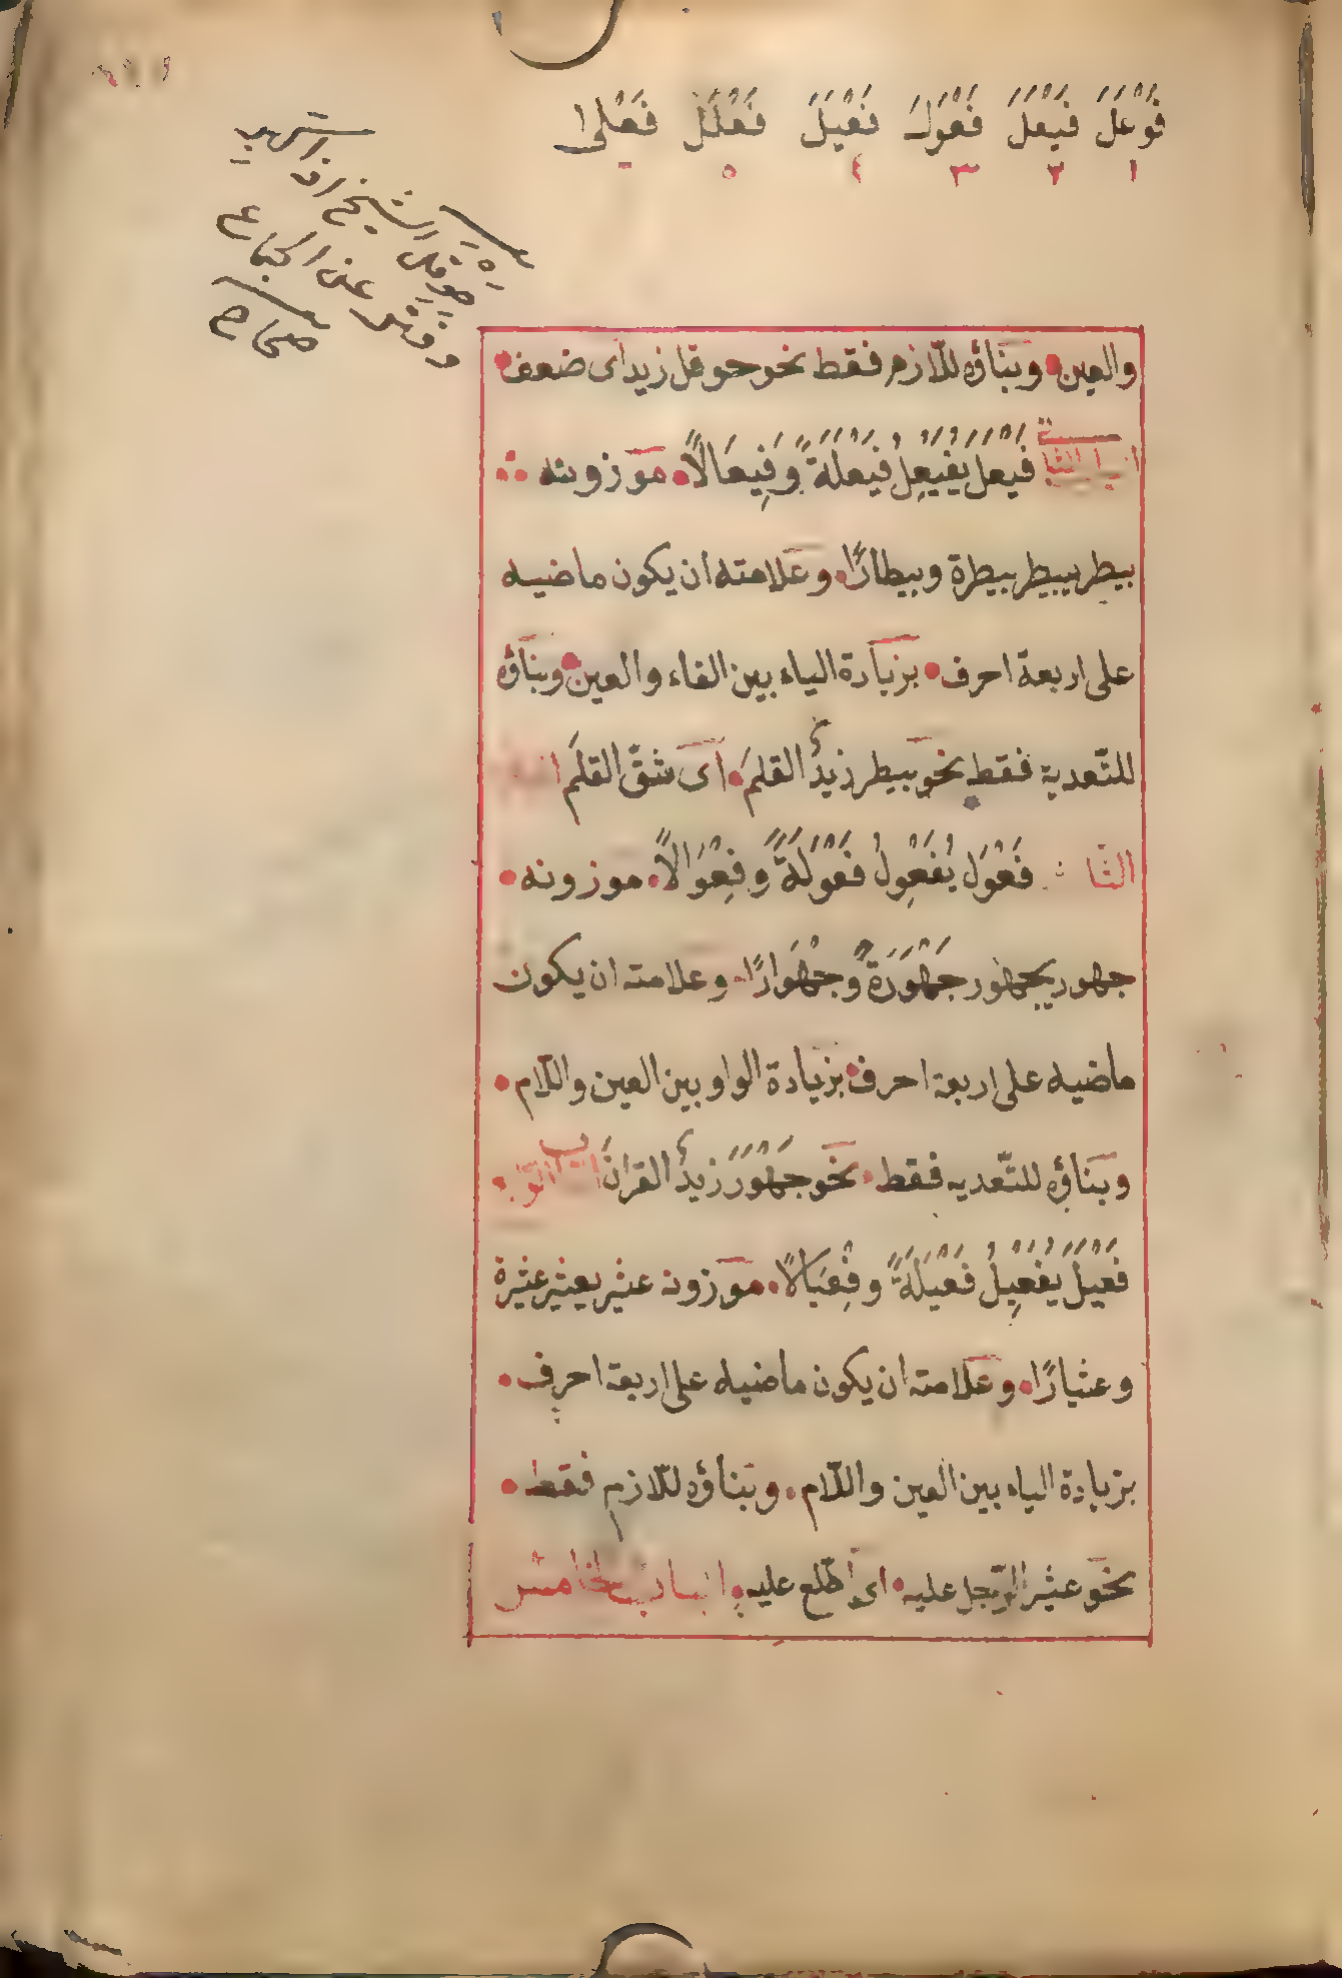 فَوْعَلَ فَيْعَلَ فَعْوَلَ فَعْيَلَ فَعْلَلَ فَعْلى
١ ٢ ٣ ٤ ٥
حوقل الشيخ اذا
وفتر عن الجماع
صحاح
والعين وبناؤه للّازم فقط نحو حوقل زيد اى ضعف
فَيْعَلَ يُفَيْعِلُ فَيْعَلَةً وَفِيعَالًا موزونه
بيطر يبيطر بيطرة وبيطارًا وعلامته ان يكون ماضيه
على اربعة احرف بزيادة الياء بين الفاء والعين وبناؤه
للتّعدية فقط نحو بيطر زيدٌ القلمَ اى شقّ القلمَ
الثا فَعْوَلَ يُفَعْوِلُ فَعْوَلَةً وَفِعْوَالًا موزونه
جهور يجهور جَهْوَرَةً وجِهْوَارًا وعلامته ان يكون
ماضيه على اربعة احرف بزيادة الواو بين العين واللّام
وبناؤه للتّعديه فقط نحو جَهْوَرَ زيدٌ القرانَ
فَعْيَلَ يُفَعْيِلُ فَعْيَلَةً وفِعْيَالًا موزونه عثير يعثير عثيرة
وعثيارًا وعلامته ان يكون ماضيه على اربعة احرف
بزيادة الياء بين العين واللّام وبناؤه للّازم فقط
نحو عثير الرّجل عليه اى اطّلع عليه الباب الخامس